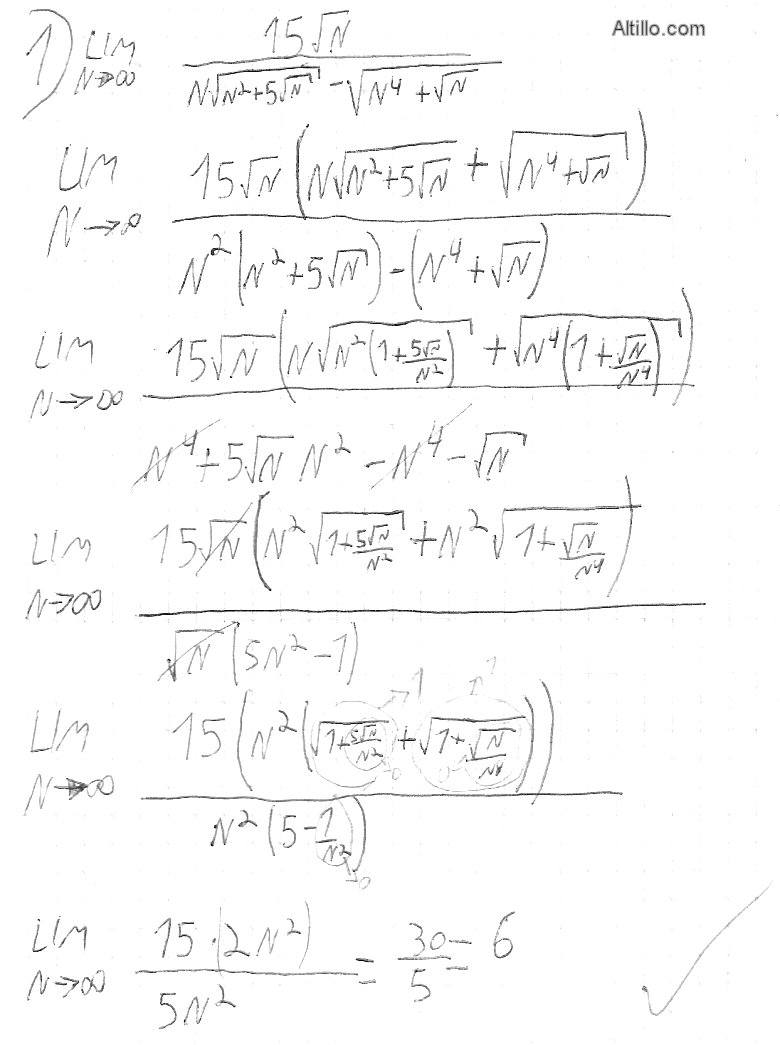 Altillo.com
1) LIM N→∞ 15√N / (N√(N²+5√N) - √(N⁴+√N))
LIM N→∞ 15√N (N√(N²+5√N) + √(N⁴+√N)) / (N²(N²+5√N) - (N⁴+√N))
LIM N→∞ 15√N (N√(N²(1+5√N/N²)) + √(N⁴(1+√N/N⁴))) / (N⁴+5√N N² - N⁴ - √N)
LIM N→∞ 15√N (N²√(1+5√N/N²) + N²√(1+√N/N⁴)) / (√N (5N²-1))
→1 →1
LIM N→∞ 15 (N² (√(1+5√N/N²) + √(1+√N/N⁴))) / (N² (5-1/N²))
→0 0← →0
LIM N→∞ 15·(2N²) / 5N² = 30/5 = 6 ✓